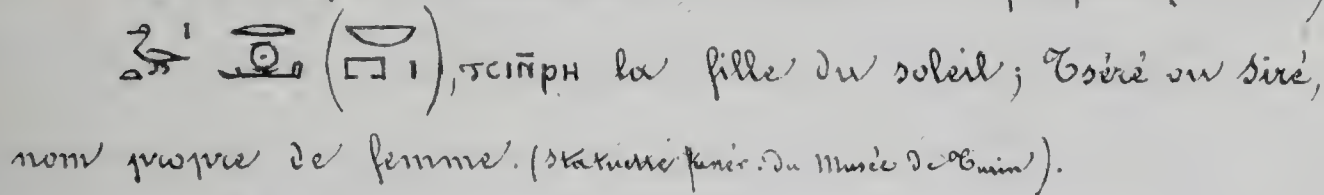 𓅭𓏏𓏤 𓂋𓇳𓂝 (𓎟𓉐𓏤), ⲧⲥⲓⲛ̄ⲣⲏ la fille du soleil; Tséré ou Siré,
nom propre de femme. (Statuette funér. du Musée de Turin).